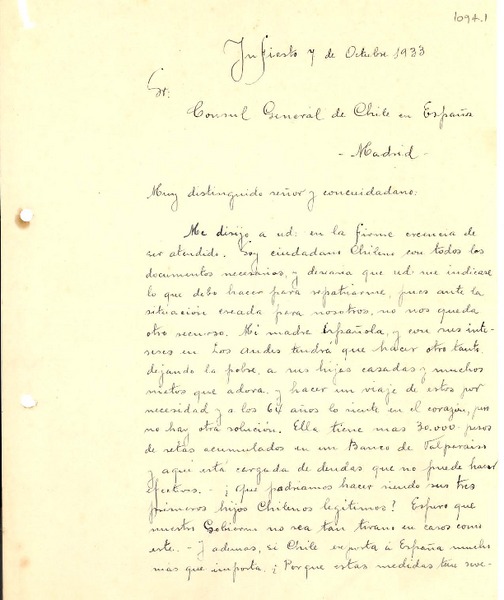 1094.1
Infiesto 7 de Octubre 1933
Sr:
Consul General de Chile en España
- Madrid -
Muy distinguido señor y concuidadano:
Me dirijo a ud: en la firme creencia de
ser atendido. Soy ciudadano Chileno con todos los
documentos necesarios, y desearia que ud me indicase
lo que debo hacer para repatriarme, pues ante la
situación creada para nosotros, no nos queda
otro recurso. Mi madre Española, y con sus inte-
reses en Los Andes tendrá que hacer otro tanto
dejando la pobre, a sus hijas casadas y muchos
nietos que adora, y hacer un viaje de estos por
necesidad y a los 64 años lo siente en el corazón, pero
no hay otra solución. Ella tiene mas 30.000 pesos
de retas acumulados en un Banco de Valparaiso
y aqui está cargada de deudas que no puede hacer
efectivas. - ¡Que podriamos hacer siendo sus tres
primeros hijos Chilenos legitimos? Espero que
nuestro Gobierno no sea tan tirano en casos como
este. - Y ademas, si Chile exporta á España mucho
mas que importa. ¡Porque estas medidas tan seve-